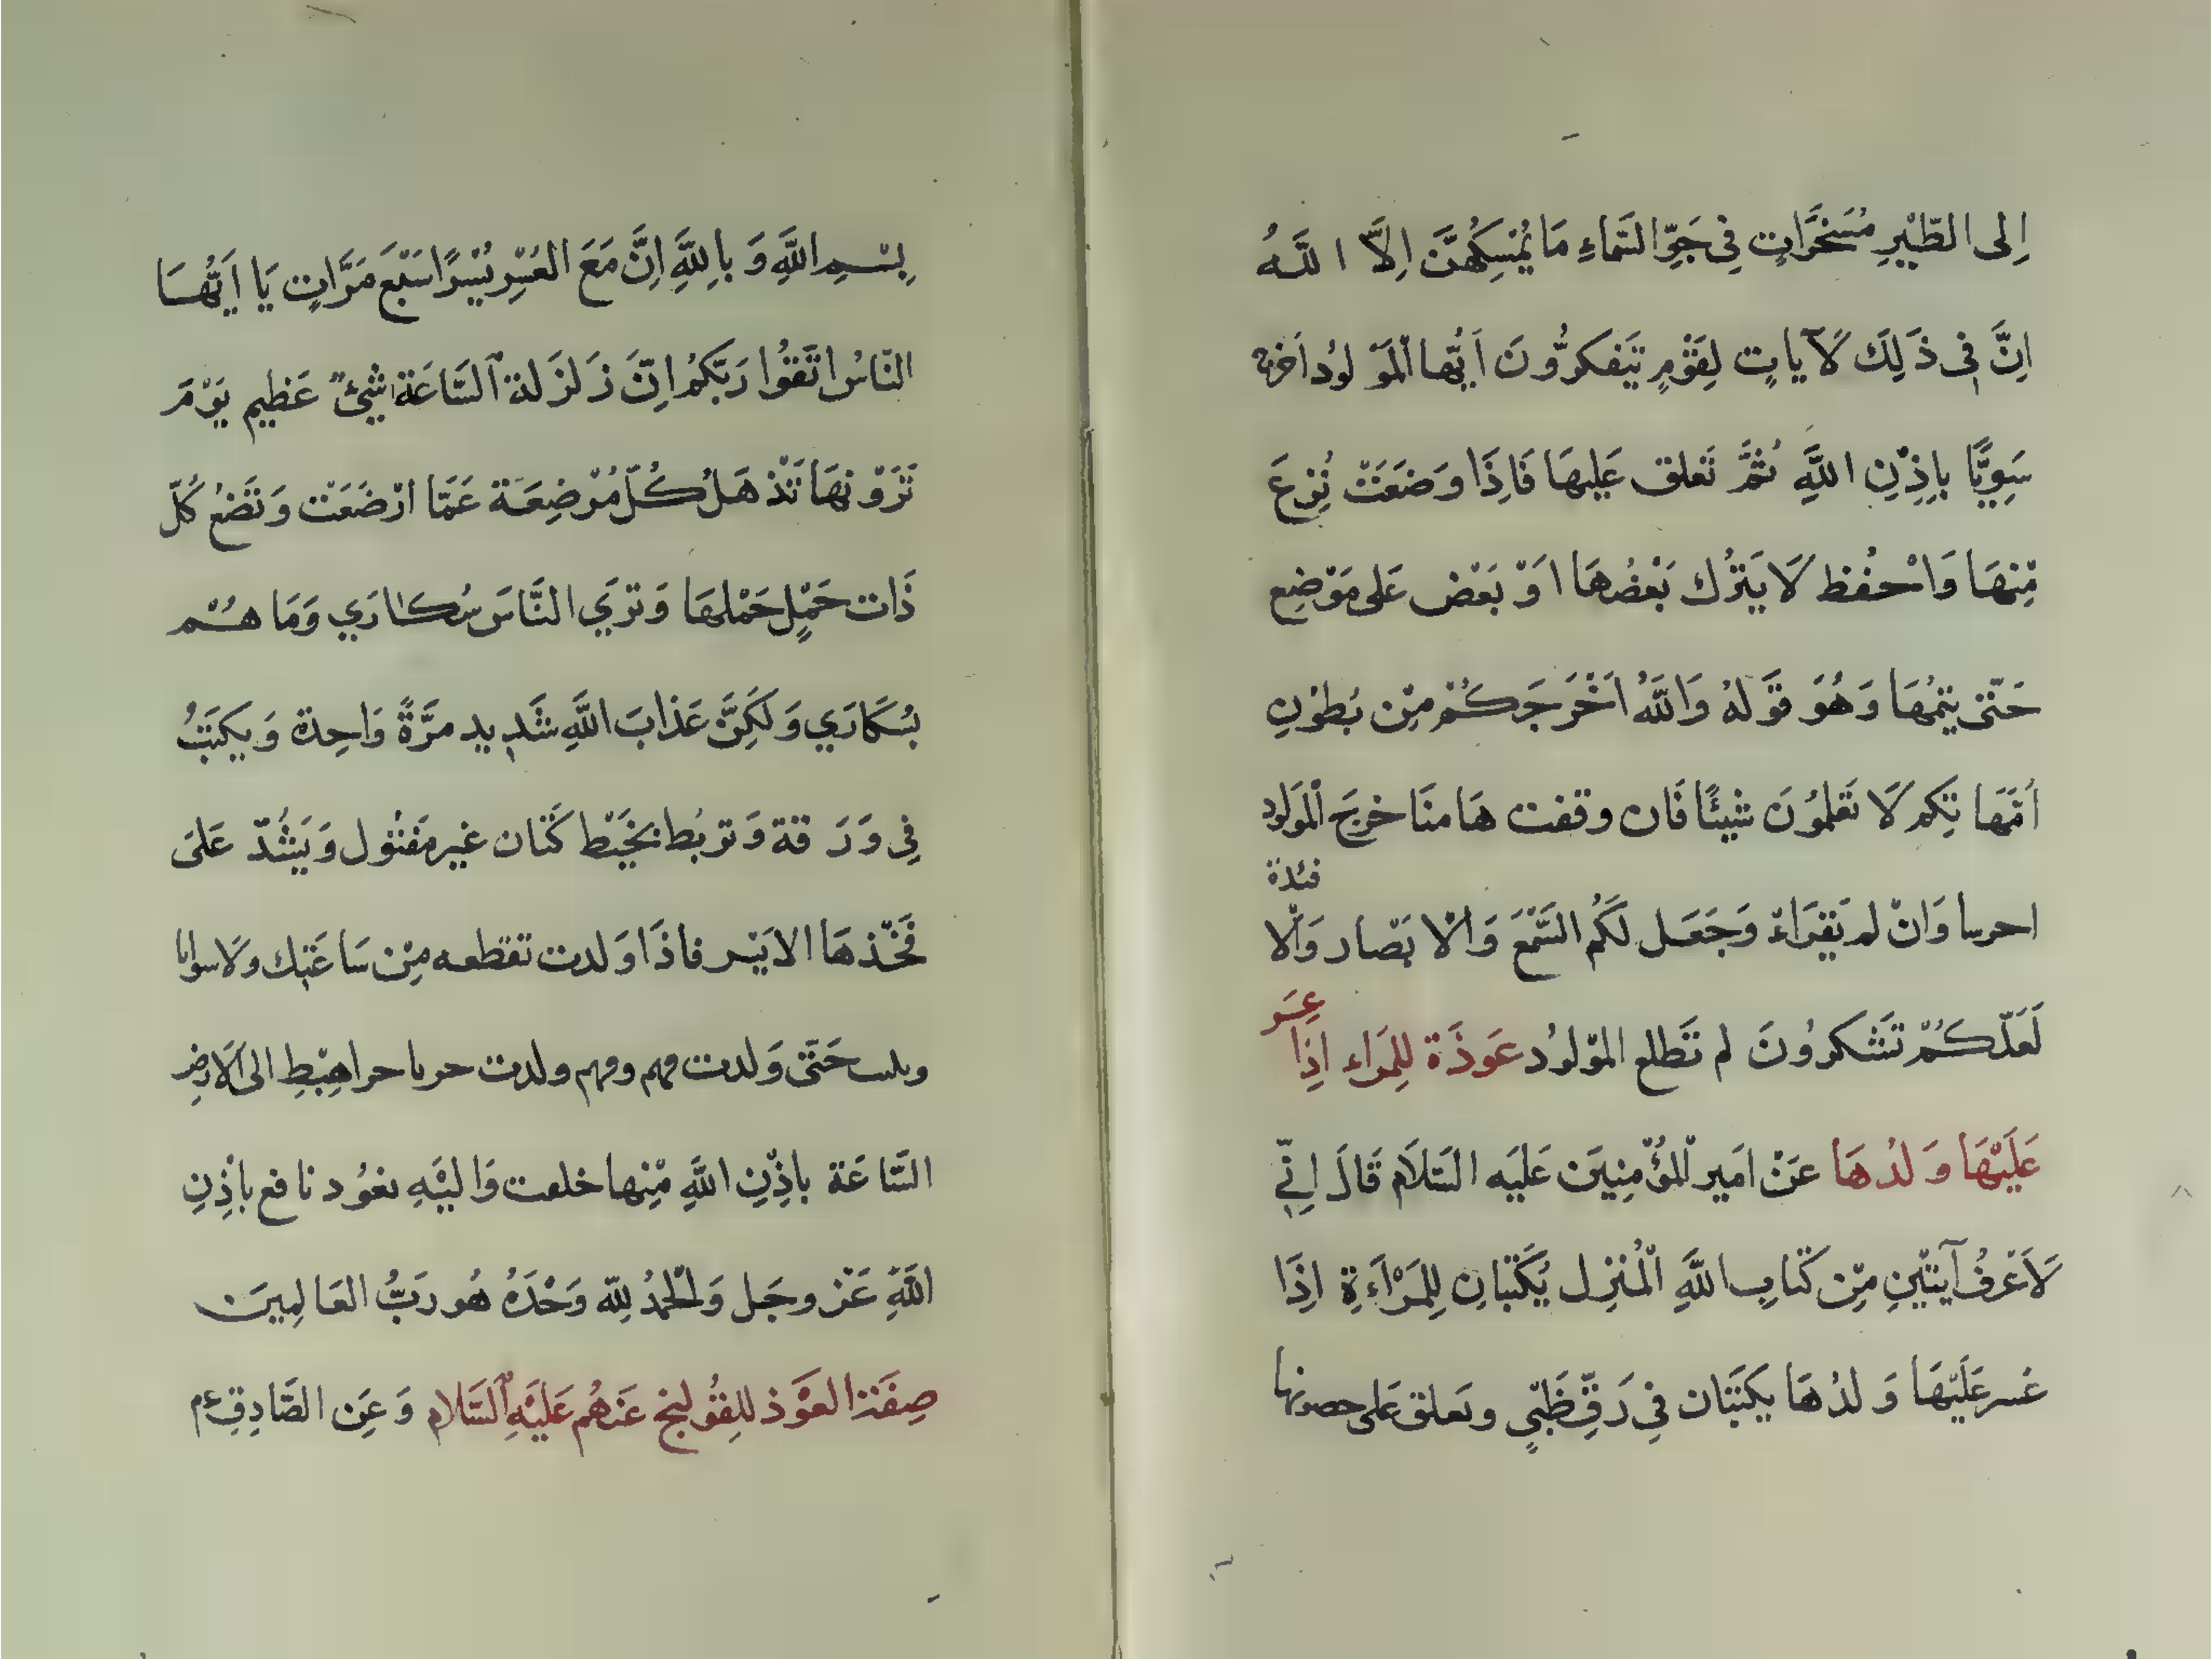 اِلى الطَّيْرِ مُسَخَّرَاتٍ فِى جَوِّ السَّماءِ مَا يُمْسِكُهُنَّ اِلَّا اللَّهُ
اِنَّ فِى ذَلِكَ لَآيَاتٍ لِقَوْمٍ يَتَفكرُّونَ اَيُّها الْمَوْلوُد اَخرج
سَوِيًّا بِاِذْنِ اللَّهِ ثُمَّ تَعلق عَلِيهَا فَاِذَا وَضَعَتْ نُزِعَ
مِّنهَا وَاحْفُظ لَا يَتْرُك بَعْضُهَا اَوْ بَعْض عَلى مَوْضِع
حَتّى يتِمُهَا وَهُوَ قَوَلهُ وَاللَّهُ اَخْرَجَكُمْ مِنْ بُطُوْنِ
اُمَّهَا تِكِم لَا تَعْلَمُوُنَ شَيْئًا فَان وقفت هَا منَا خرجَ الْمَولود
فئدة
وَانْ لم تَقرَاءْ وَجَعَل لَكُم السَّمْعَ وَالْا بَصْار وَالْا
لَعَلّكُمْ تَشكرُونَ لم تَطلع الموْلوُد عَوذَة لِلمَراء اِذَا عسَر
عَلَيْهَا وَلدُهَا عَنْ امَير الْمُؤْمِنِيَن عَليَه السَّلَام قَالَ اِنّى
لَاَعْرفُ آيتَيْنِ مِّن كَتابِ اللَّهِ الْمُنْزِل يُكْتَبَانِ لِلمَرْاَءَةِ اِذَا
عَسر عَلَيْهَا وَلدُهَا يكتبَان فِى رَقِّ ظَبْيٍ وتَعلق عَلى حصونها
بِسْمِ اللَّهِ وَ بِاللَّهِ اِنَّ مَعَ العُسْرِ يُسْرًا سَبْعَ مَرَّاتٍ يَا اَيُّهَا
النّاسُ اتَّقوُا رَبَّكُم اِنَّ زَلزَلة السَّاعَة شَيْئٌ عَظِيم يَوْمَ
تَرَوْنهَا تَذْهَلُ كُلّ مُرْضِعَة عَمَّا اَرْضَعَتْ وَتَضَعُ كُلّ
ذَات حَمْلٍ حَمْلهَا وَتَرَي النَّاسَ سُكارَي وَمَا هُمْ
بسُكَارَي وَلَكِنَّ عَذابَ اللَّهِ شَدِيد مرَّةً وَاحِدة وَيكتبُ
فِى وَرَ قة وَتربُط بخَيْط كَتَان غير مَفتوُل وَيَشُدّ عَلىَ
فَخّذهَا الايَسْر فاذَا وَلدت تقطعه مِنْ سَاعَتِك
حَتّى وَلدت ولدت اهبْطِ الى الَارضِ
السَّاعَة باِذْنِ اللَّهِ مِّنها خلقت وَاليْهِ نعوُد نافع باذِنِ
اللَّهِ عَزَّ وجَل وَالْحَمْدُ لِلّه وَحْدَهُ هُو رَبُّ العَالمِينَ
صِفَة العَوْذ للِقوُلنج عَنهُم عَليْهِ السَّلام وَعَن الصَّادِقِ ع م